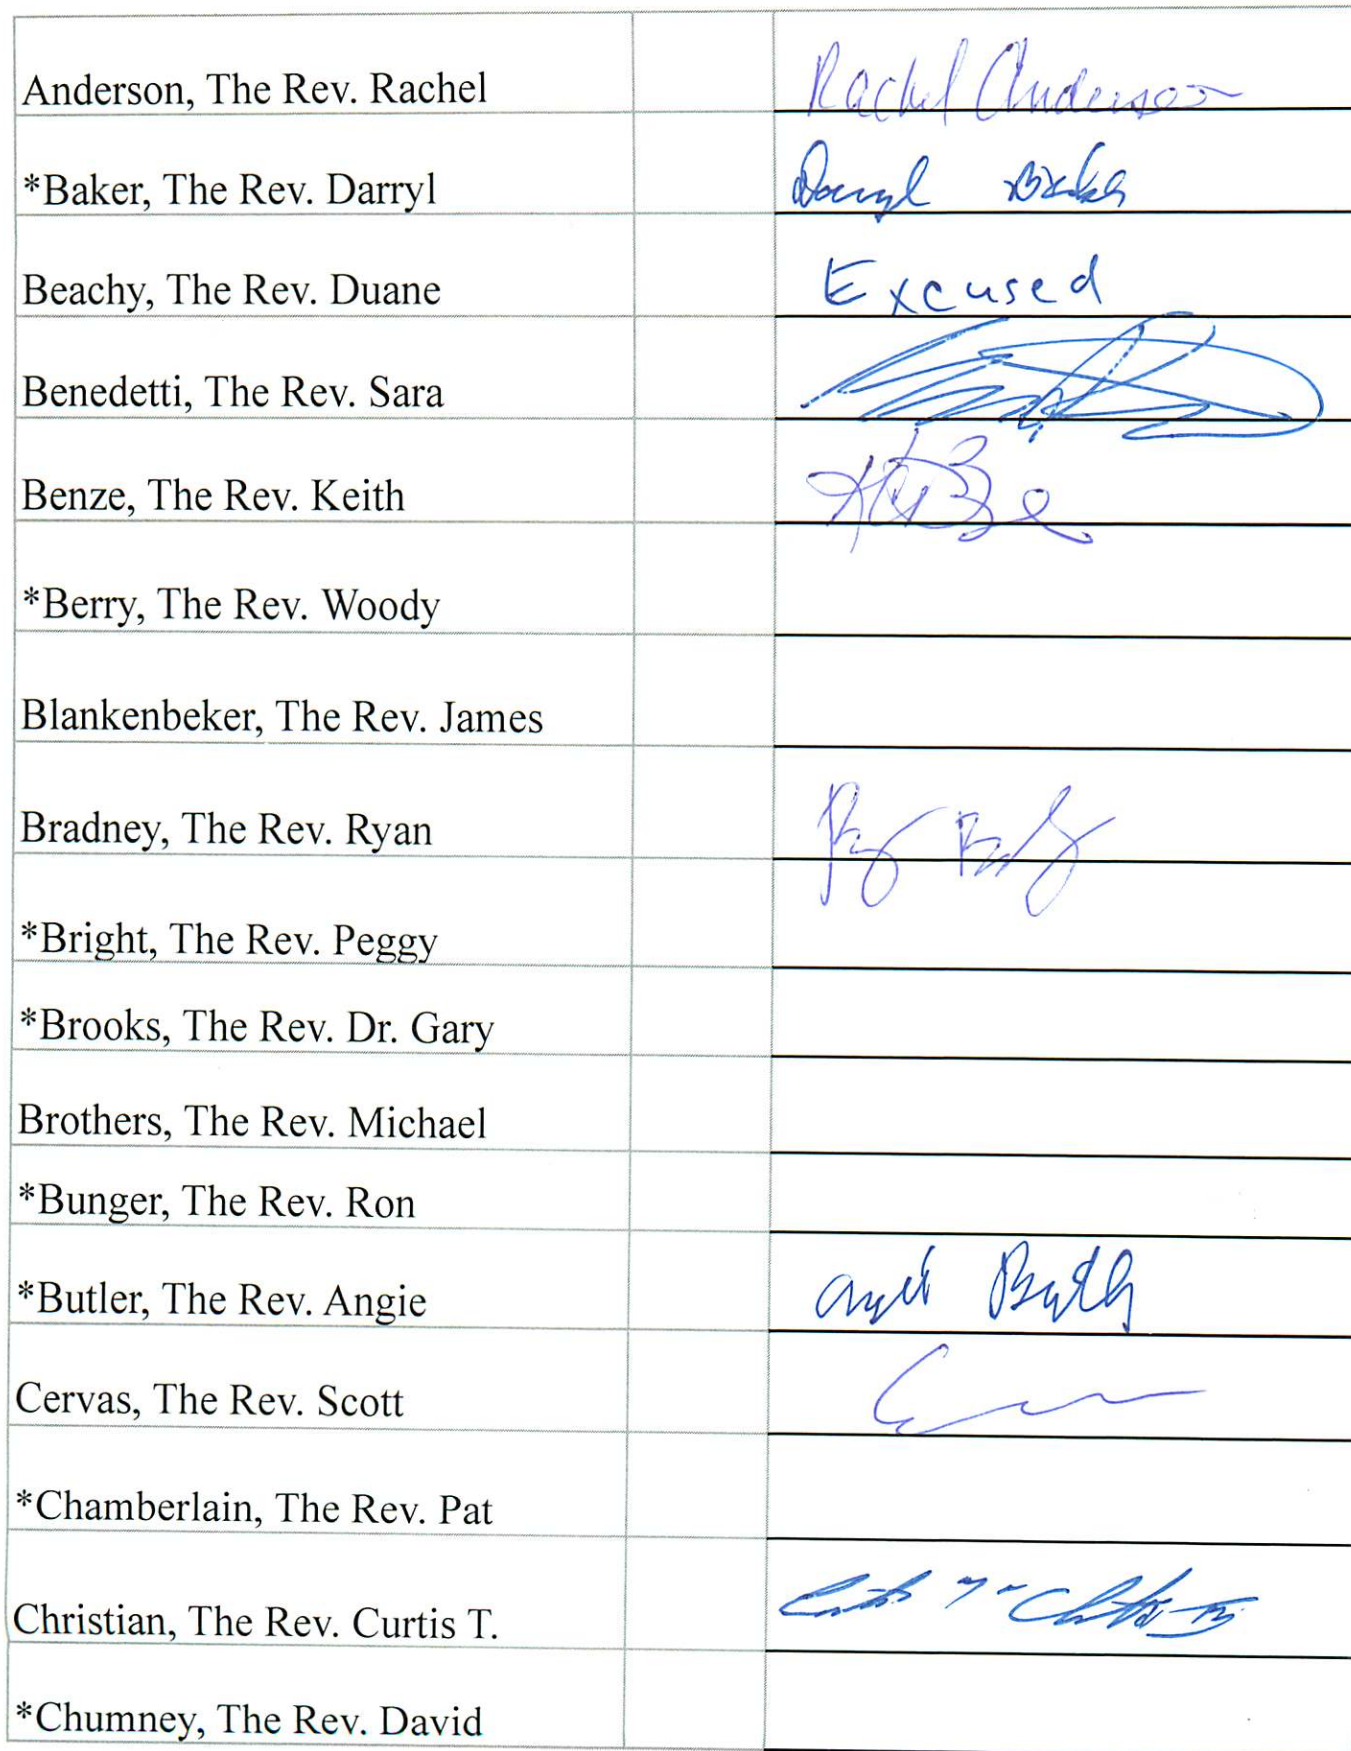 Anderson, The Rev. Rachel Rachel Anderson
*Baker, The Rev. Darryl Darryl Baker
Beachy, The Rev. Duane Excused
Benedetti, The Rev. Sara
Benze, The Rev. Keith
*Berry, The Rev. Woody
Blankenbeker, The Rev. James
Bradney, The Rev. Ryan
*Bright, The Rev. Peggy
*Brooks, The Rev. Dr. Gary
Brothers, The Rev. Michael
*Bunger, The Rev. Ron
*Butler, The Rev. Angie Angie Butler
Cervas, The Rev. Scott
*Chamberlain, The Rev. Pat
Christian, The Rev. Curtis T.
*Chumney, The Rev. David